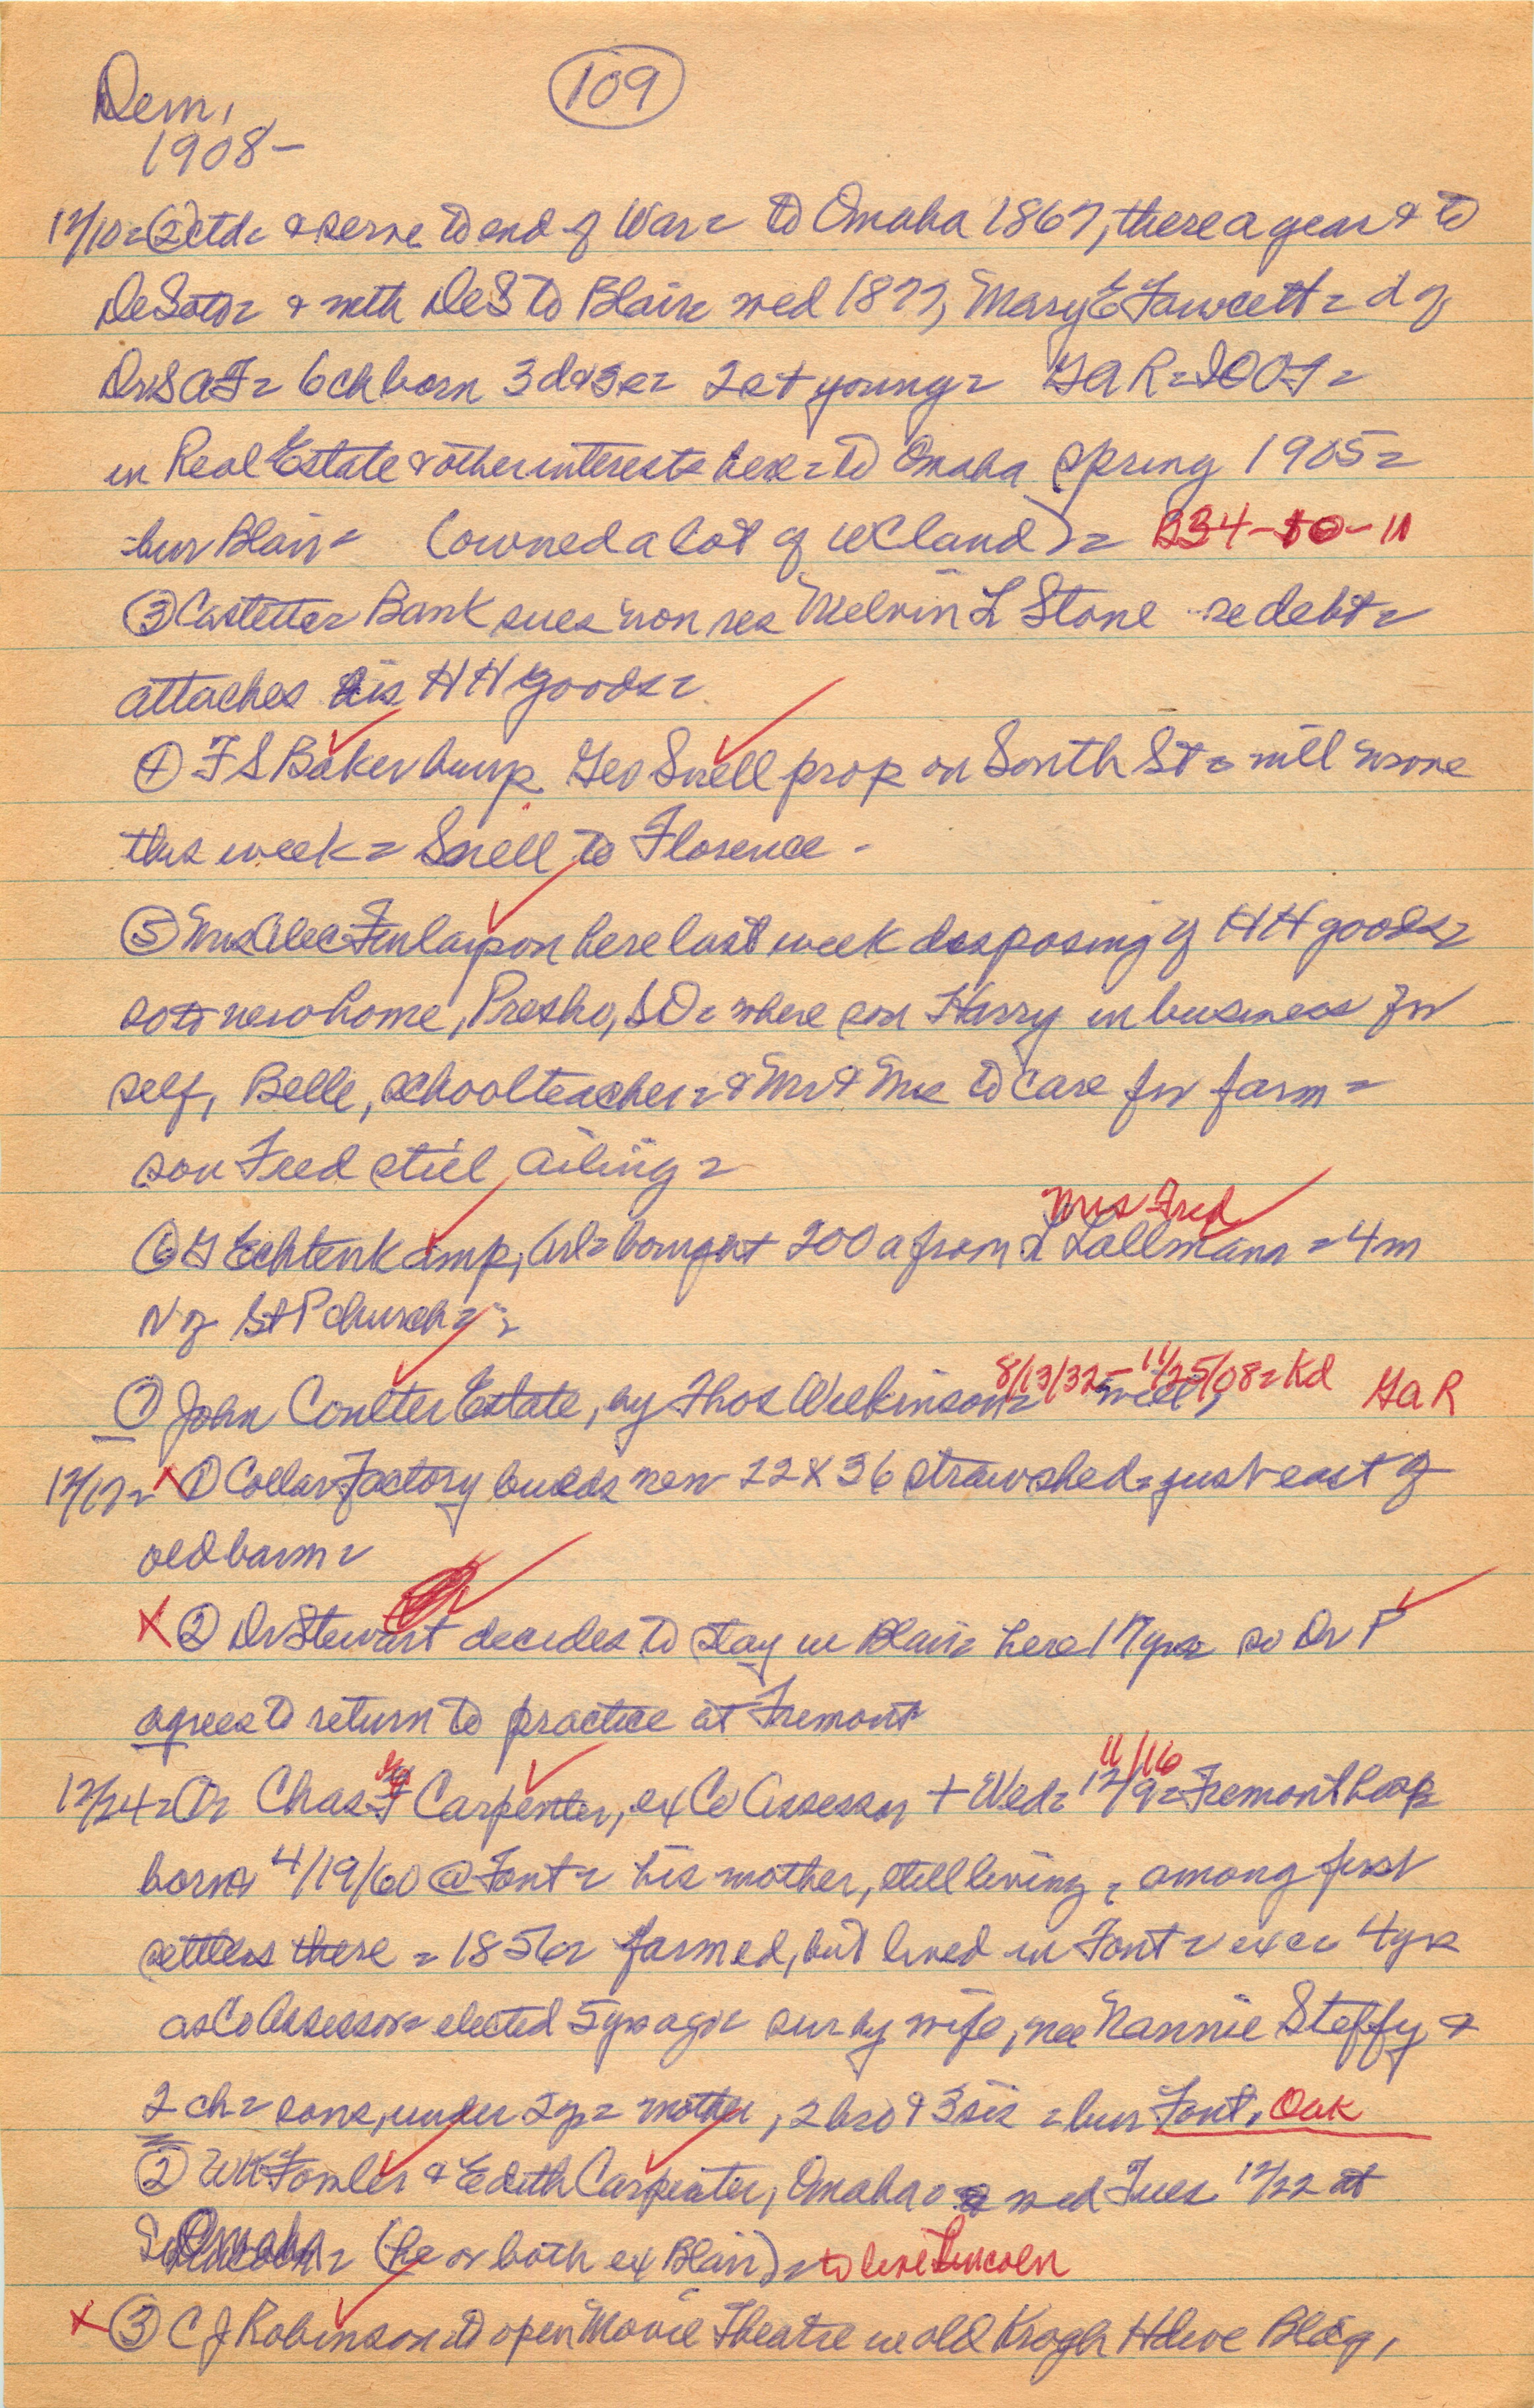 109
Dem,
1908-
12/10= (2) ctd= & serve to end of War= to Omaha 1867, there a year & to
DeSoto= & with DeS to Blair= wed 1877, Mary E Fawcett= d of
Dr S A F= 6 ch born 3 d & 3 s= 2 s + young= GAR= IOOF=
in Real Estate & other interests here= to Omaha spring 1905=
bur Blair= (owned a lot of WC land)= B34-10-11
(3) Castetter Bank sues non res Melvin L Stone re debt=
attaches his HH goods=
(4) F S Baker buys Geo Snell prop on South St= will move
this week= Snell to Florence-
(5) Mrs Alec Finlayson here last week disposing of HH goods=
so to new home, Presho, SD= where son Harry in business for
self, Belle, schoolteacher= & Mr & Mrs to care for farm=
son Fred still ailing=
Mrs Fred
(6) G Echtenkamp, Arl= bought 200 a from L Lallmann= 4m
N of St P church=
8/13/32-11/25/08= Kd GAR
(7) John Coulter Estate, by Thos Wilkinson= will,
12/17= x (1) Collar Factory builds new 22 X 36 strawshed= just east of
old barn=
X (2) Dr Stewart decides to stay in Blair= here 17 yrs= so Dr P
agrees to return to practice at Fremont
11/16
12/24= O= Chas F Carpenter, ex Co Assessor + Wed= 12/9= Fremont hosp=
born 4/19/60 @ Font= his mother, still living, among first
settlers there= 1856= farmed, but lived in Font= exc 4 yrs
as Co Assessor= elected 5 yrs ago= sur by wife, nee Nannie Steffy &
2 ch= sons, under 2 y= mother, 2 bro & 3 sis= bur Font, Oak
(2) W K Fowler & Edith Carpenter, Omaha= wed Tues 12/22 at
Omaha= (he or both ex Blair)= to live Lincoln
x (3) C J Robinson to open Movie Theatre in old Krogh Hdwe Bldg,